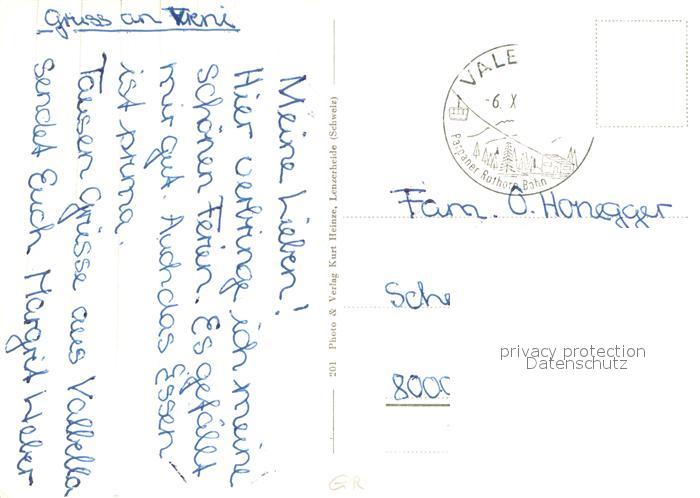 Gruss an Vreni
Meine Lieben!
Hier verbringe ich meine
schönen Ferien. Es gefällt
mir gut. Auch das Essen
ist prima.
Tausen Grüsse aus Valbella
sendet Euch Margrit Weber
201 Photo & Verlag Kurt Heinze, Lenzerheide (Schweiz)
VALB
-6. X
Parpaner Rothorn Bahn
Fam. O. Honegger
Sche
8000
privacy protection
Datenschutz
GR